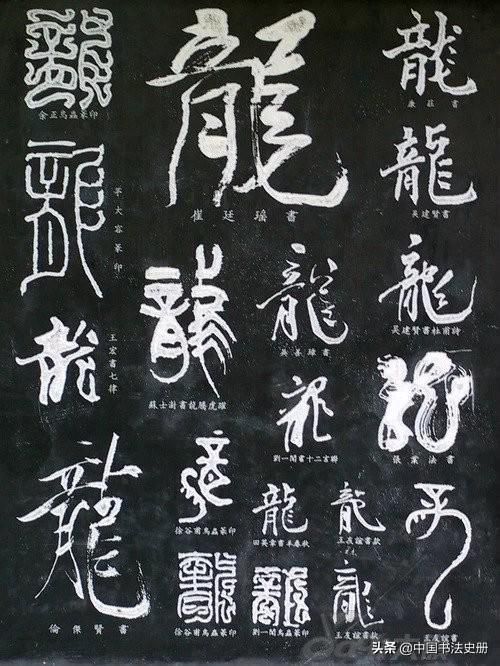 龍
余正鳥蟲篆印
龍
崔廷瑶書
龍
康莊書
龍
吴建賢書
龍
芋大容篆印
龍
蘇士澍書龍騰虎躍
龍
吴善璋書
龍
吴建賢書杜甫詩
龍
王宏書七律
龍
劉一聞書十二言聯
龍
張業法書
龍
倫傑賢書
龍
徐谷甫鳥蟲篆印
龍
田英章書羊春秋
龍
王友誼書款
龍
龍
徐谷甫鳥蟲篆印
龍
劉一聞鳥蟲篆印
龍
王友誼書款
王友誼書
头条 @中国书法史册